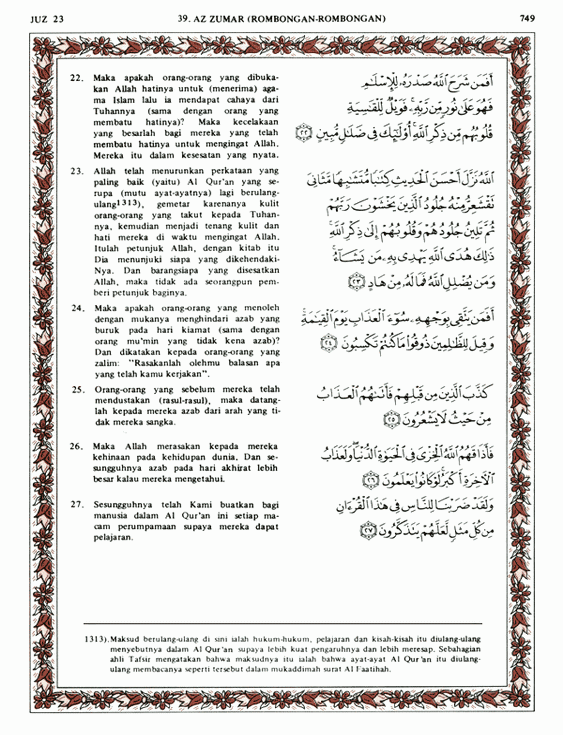 JUZ 23 39. AZ ZUMAR (ROMBONGAN-ROMBONGAN) 749
22. Maka apakah orang-orang yang dibuka-
kan Allah hatinya untuk (menerima) aga-
ma Islam lalu ia mendapat cahaya dari
Tuhannya (sama dengan orang yang
membatu hatinya)? Maka kecelakaan
yang besarlah bagi mereka yang telah
membatu hatinya untuk mengingat Allah.
Mereka itu dalam kesesatan yang nyata.
أَفَمَن شَرَحَ ٱللَّهُ صَدْرَهُۥ لِلْإِسْلَٰمِ
فَهُوَ عَلَىٰ نُورٍ مِّن رَّبِّهِۦ ۚ فَوَيْلٌ لِّلْقَٰسِيَةِ
قُلُوبُهُم مِّن ذِكْرِ ٱللَّهِ ۚ أُو۟لَٰٓئِكَ فِى ضَلَٰلٍ مُّبِينٍ ﴿٢٢﴾
23. Allah telah menurunkan perkataan yang
paling baik (yaitu) Al Qur'an yang se-
rupa (mutu ayat-ayatnya) lagi berulang-
ulang1313), gemetar karenanya kulit
orang-orang yang takut kepada Tuhan-
nya, kemudian menjadi tenang kulit dan
hati mereka di waktu mengingat Allah.
Itulah petunjuk Allah, dengan kitab itu
Dia menunjuki siapa yang dikehendaki-
Nya. Dan barangsiapa yang disesatkan
Allah, maka tidak ada seorangpun pem-
beri petunjuk baginya.
ٱللَّهُ نَزَّلَ أَحْسَنَ ٱلْحَدِيثِ كِتَٰبًا مُّتَشَٰبِهًا مَّثَانِىَ
تَقْشَعِرُّ مِنْهُ جُلُودُ ٱلَّذِينَ يَخْشَوْنَ رَبَّهُمْ
ثُمَّ تَلِينُ جُلُودُهُمْ وَقُلُوبُهُمْ إِلَىٰ ذِكْرِ ٱللَّهِ ۚ
ذَٰلِكَ هُدَى ٱللَّهِ يَهْدِى بِهِۦ مَن يَشَآءُ ۚ
وَمَن يُضْلِلِ ٱللَّهُ فَمَا لَهُۥ مِنْ هَادٍ ﴿٢٣﴾
24. Maka apakah orang-orang yang menoleh
dengan mukanya menghindari azab yang
buruk pada hari kiamat (sama dengan
orang mu'min yang tidak kena azab)?
Dan dikatakan kepada orang-orang yang
zalim: "Rasakanlah olehmu balasan apa
yang telah kamu kerjakan".
أَفَمَن يَتَّقِى بِوَجْهِهِۦ سُوٓءَ ٱلْعَذَابِ يَوْمَ ٱلْقِيَٰمَةِ ۚ
وَقِيلَ لِلظَّٰلِمِينَ ذُوقُوا۟ مَا كُنتُمْ تَكْسِبُونَ ﴿٢٤﴾
25. Orang-orang yang sebelum mereka telah
mendustakan (rasul-rasul), maka datang-
lah kepada mereka azab dari arah yang ti-
dak mereka sangka.
كَذَّبَ ٱلَّذِينَ مِن قَبْلِهِمْ فَأَتَىٰهُمُ ٱلْعَذَابُ
مِنْ حَيْثُ لَا يَشْعُرُونَ ﴿٢٥﴾
26. Maka Allah merasakan kepada mereka
kehinaan pada kehidupan dunia. Dan se-
sungguhnya azab pada hari akhirat lebih
besar kalau mereka mengetahui.
فَأَذَاقَهُمُ ٱللَّهُ ٱلْخِزْىَ فِى ٱلْحَيَوٰةِ ٱلدُّنْيَا ۖ وَلَعَذَابُ
ٱلْءَاخِرَةِ أَكْبَرُ ۚ لَوْ كَانُوا۟ يَعْلَمُونَ ﴿٢٦﴾
27. Sesungguhnya telah Kami buatkan bagi
manusia dalam Al Qur'an ini setiap ma-
cam perumpamaan supaya mereka dapat
pelajaran.
وَلَقَدْ ضَرَبْنَا لِلنَّاسِ فِى هَٰذَا ٱلْقُرْءَانِ
مِن كُلِّ مَثَلٍ لَّعَلَّهُمْ يَتَذَكَّرُونَ ﴿٢٧﴾
1313). Maksud berulang-ulang di sini ialah hukum-hukum, pelajaran dan kisah-kisah itu diulang-ulang
menyebutnya dalam Al Qur'an supaya lebih kuat pengaruhnya dan lebih meresap. Sebahagian
ahli Tafsir mengatakan bahwa maksudnya itu ialah bahwa ayat-ayat Al Qur'an itu diulang-
ulang membacanya seperti tersebut dalam mukaddimah surat Al Faatihah.